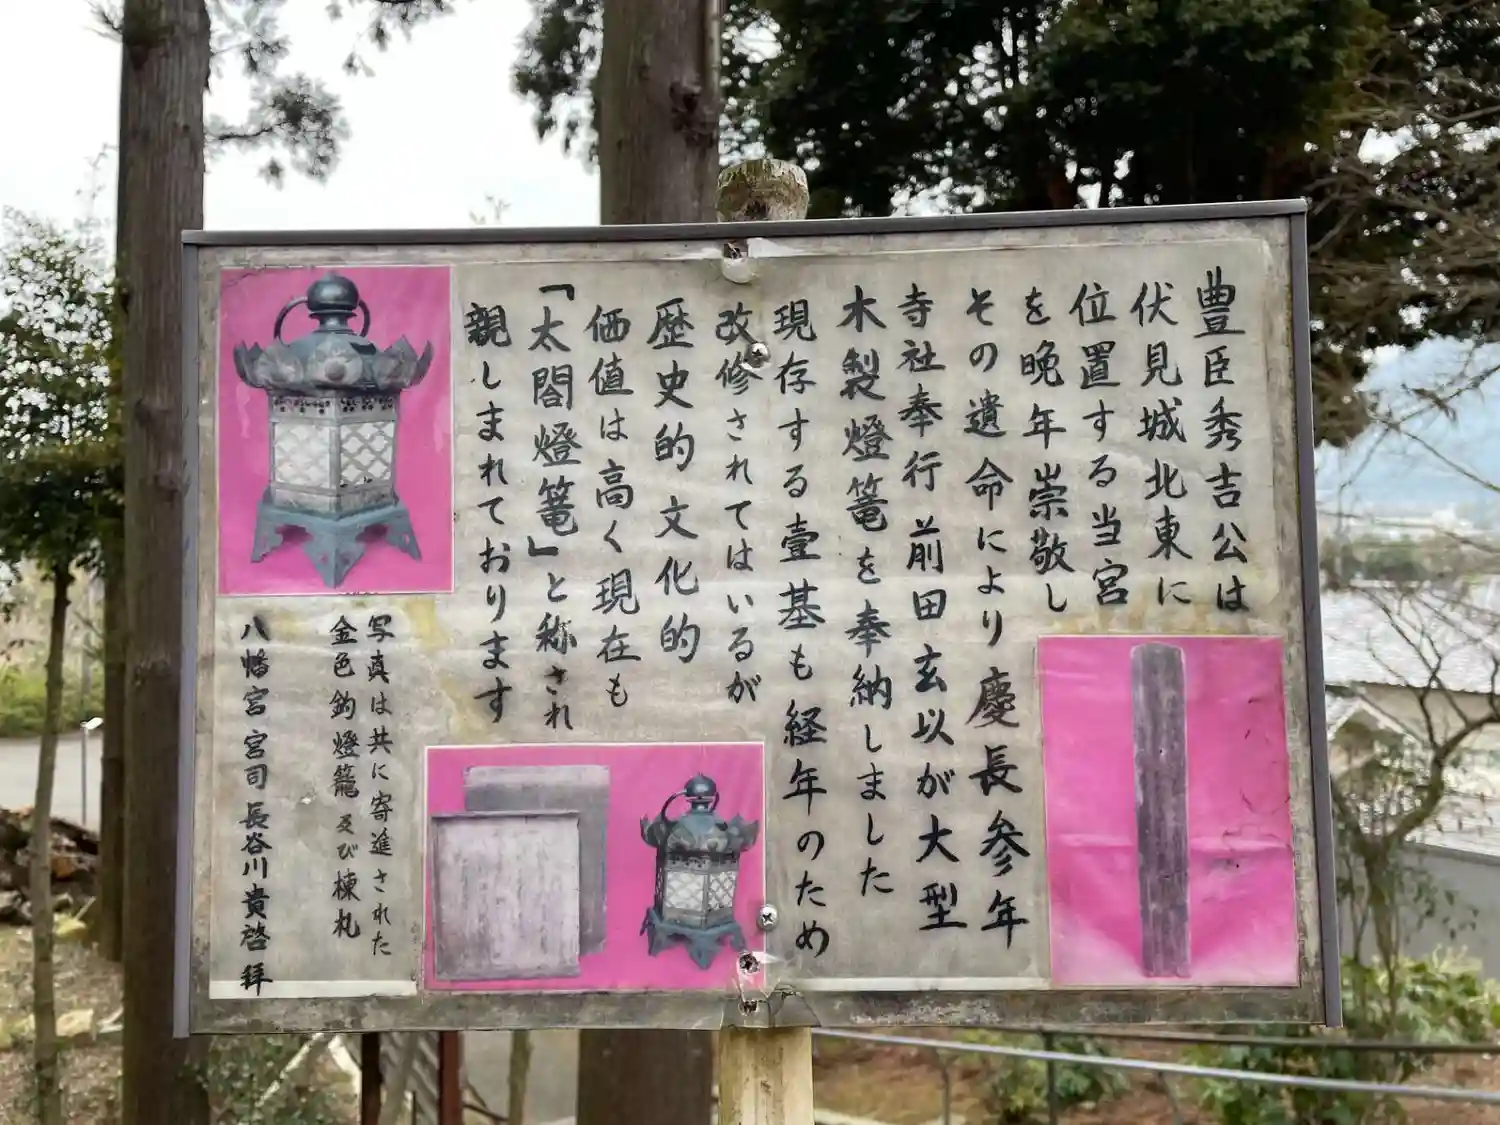 豊臣秀吉公は
伏見城北東に
位置する当宮
を晩年崇敬し
その遺命により慶長参年
寺社奉行前田玄以が大型
木製燈篭を奉納しました
現存する壹基も経年のため
改修されてはいるが
歴史的文化的
価値は高く現在も
「太閤燈篭」と称され
親しまれております
写真は共に寄進された
金色釣燈籠及び棟札
八幡宮宮司長谷川貴啓拝